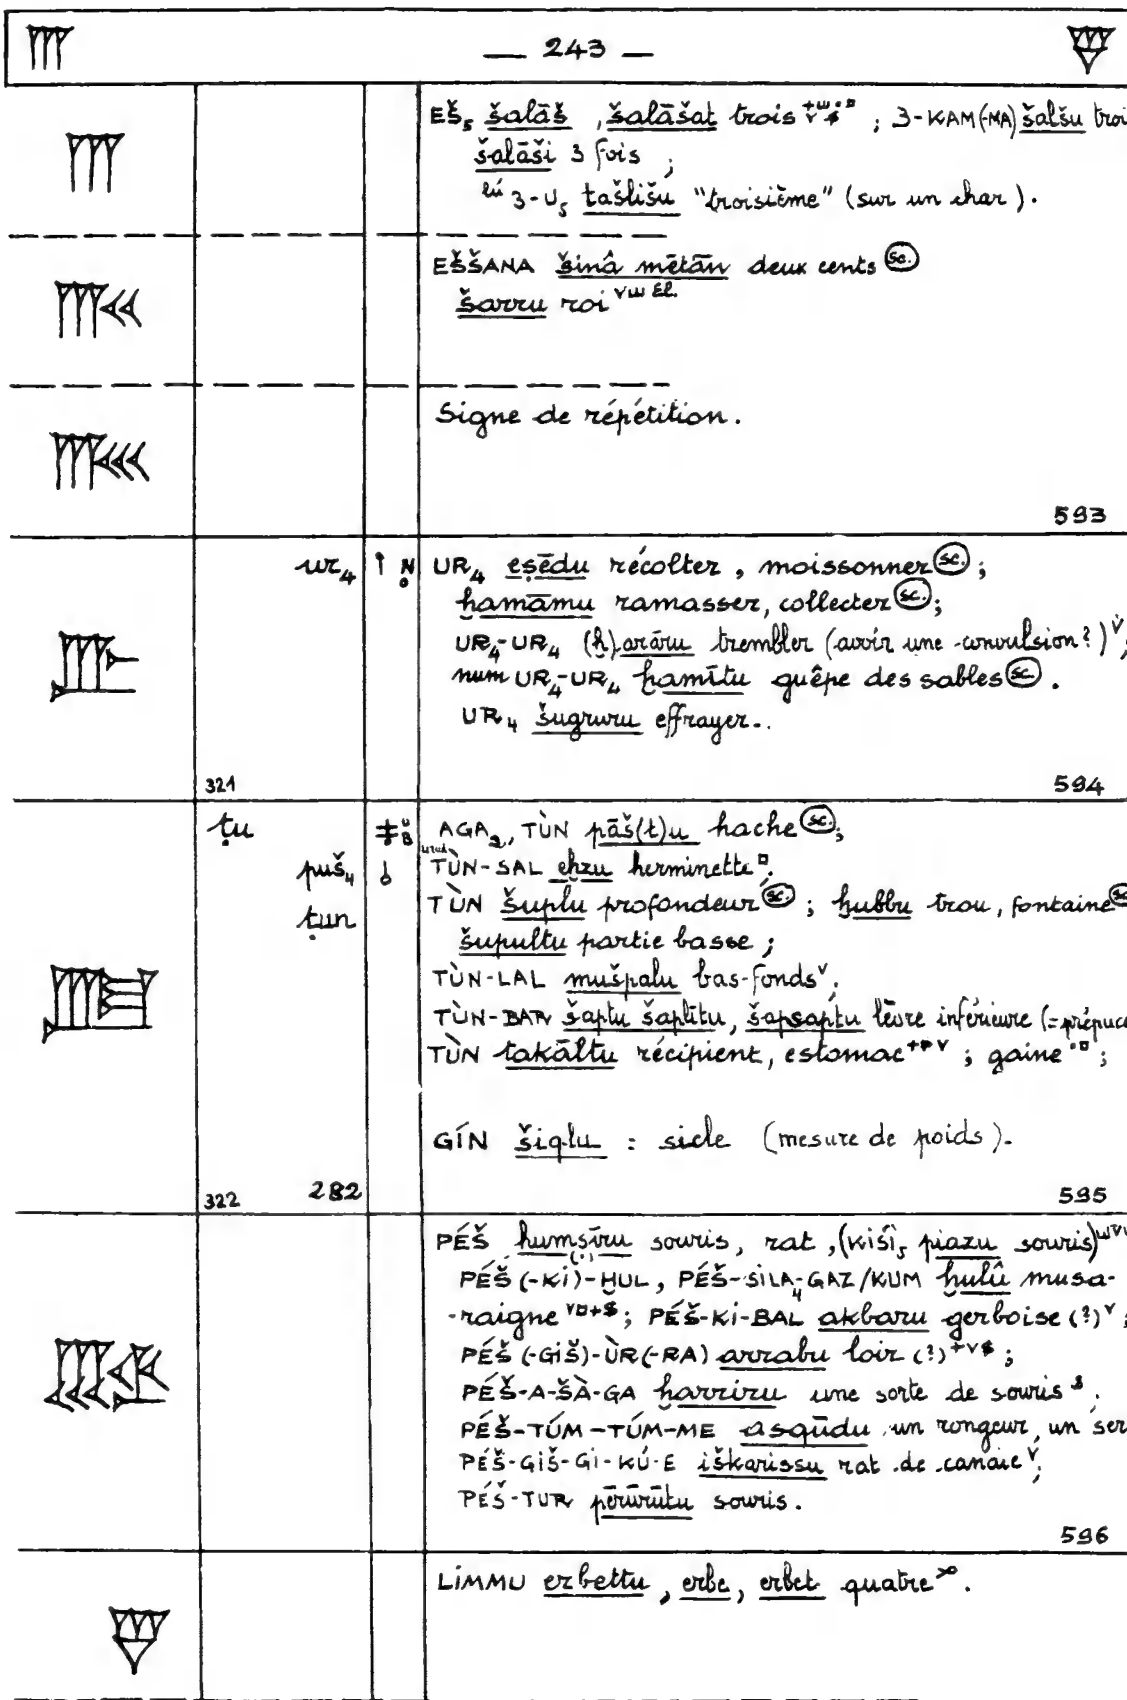 𒐈 — 243 — 𒐉
𒐈
EŠ₅ šalāš, šalāšat trois ; 3-KAM(-MA) šalšu troi
šalāši 3 fois ;
lú 3-U₅ tašlišu "troisième" (sur un char).
EŠŠANA šinā mētān deux cents (sc.)
šarru roi v w El.
Signe de répétition.
593
ur₄
UR₄ eṣēdu récolter, moissonner (sc.) ;
ḫamāmu ramasser, collecter (sc.) ;
UR₄-UR₄ (ḫ)arāru trembler (avoir une convulsion ?) v ;
num UR₄-UR₄ ḫamītu guêpe des sables (sc.).
UR₄ šugruru effrayer..
321
594
ṭu
puš₄
ṭun
AGA₂, TÙN pāš(t)u hache (sc.) ;
urud TÙN-SAL eḫzu herminette ;
TÙN šuplu profondeur (sc.) ; ḫubbu trou, fontaine (sc.)
šupultu partie basse ;
TÙN-LAL mušpalu bas-fonds v ;
TÙN-BAR šaptu šaplītu, šapsaptu lèvre inférieure (=prépuce
TÙN takāltu récipient, estomac + P v ; gaine ;
GÍN šiqlu : sicle (mesure de poids).
322
282
595
PÉŠ ḫumṣīru souris, rat, (KIŠI₅ piazu souris)
PÉŠ (-KI)-ḪUL, PÉŠ-SILA₄-GAZ/KUM ḫulû musa-
-raigne ; PÉŠ-KI-BAL akbaru gerboise (?) v ;
PÉŠ (-GIŠ)-ÙR(-RA) arrabu loir (?) ;
PÉŠ-A-ŠÀ-GA ḫarriru une sorte de souris ;
PÉŠ-TÚM-TÚM-ME asqūdu un rongeur, un ser
PÉŠ-GIŠ-GI-KÚ-E iškarissu rat de canaie v ;
PÉŠ-TUR pērūrūtu souris.
596
LIMMU erbettu, erbe, erbet quatre.